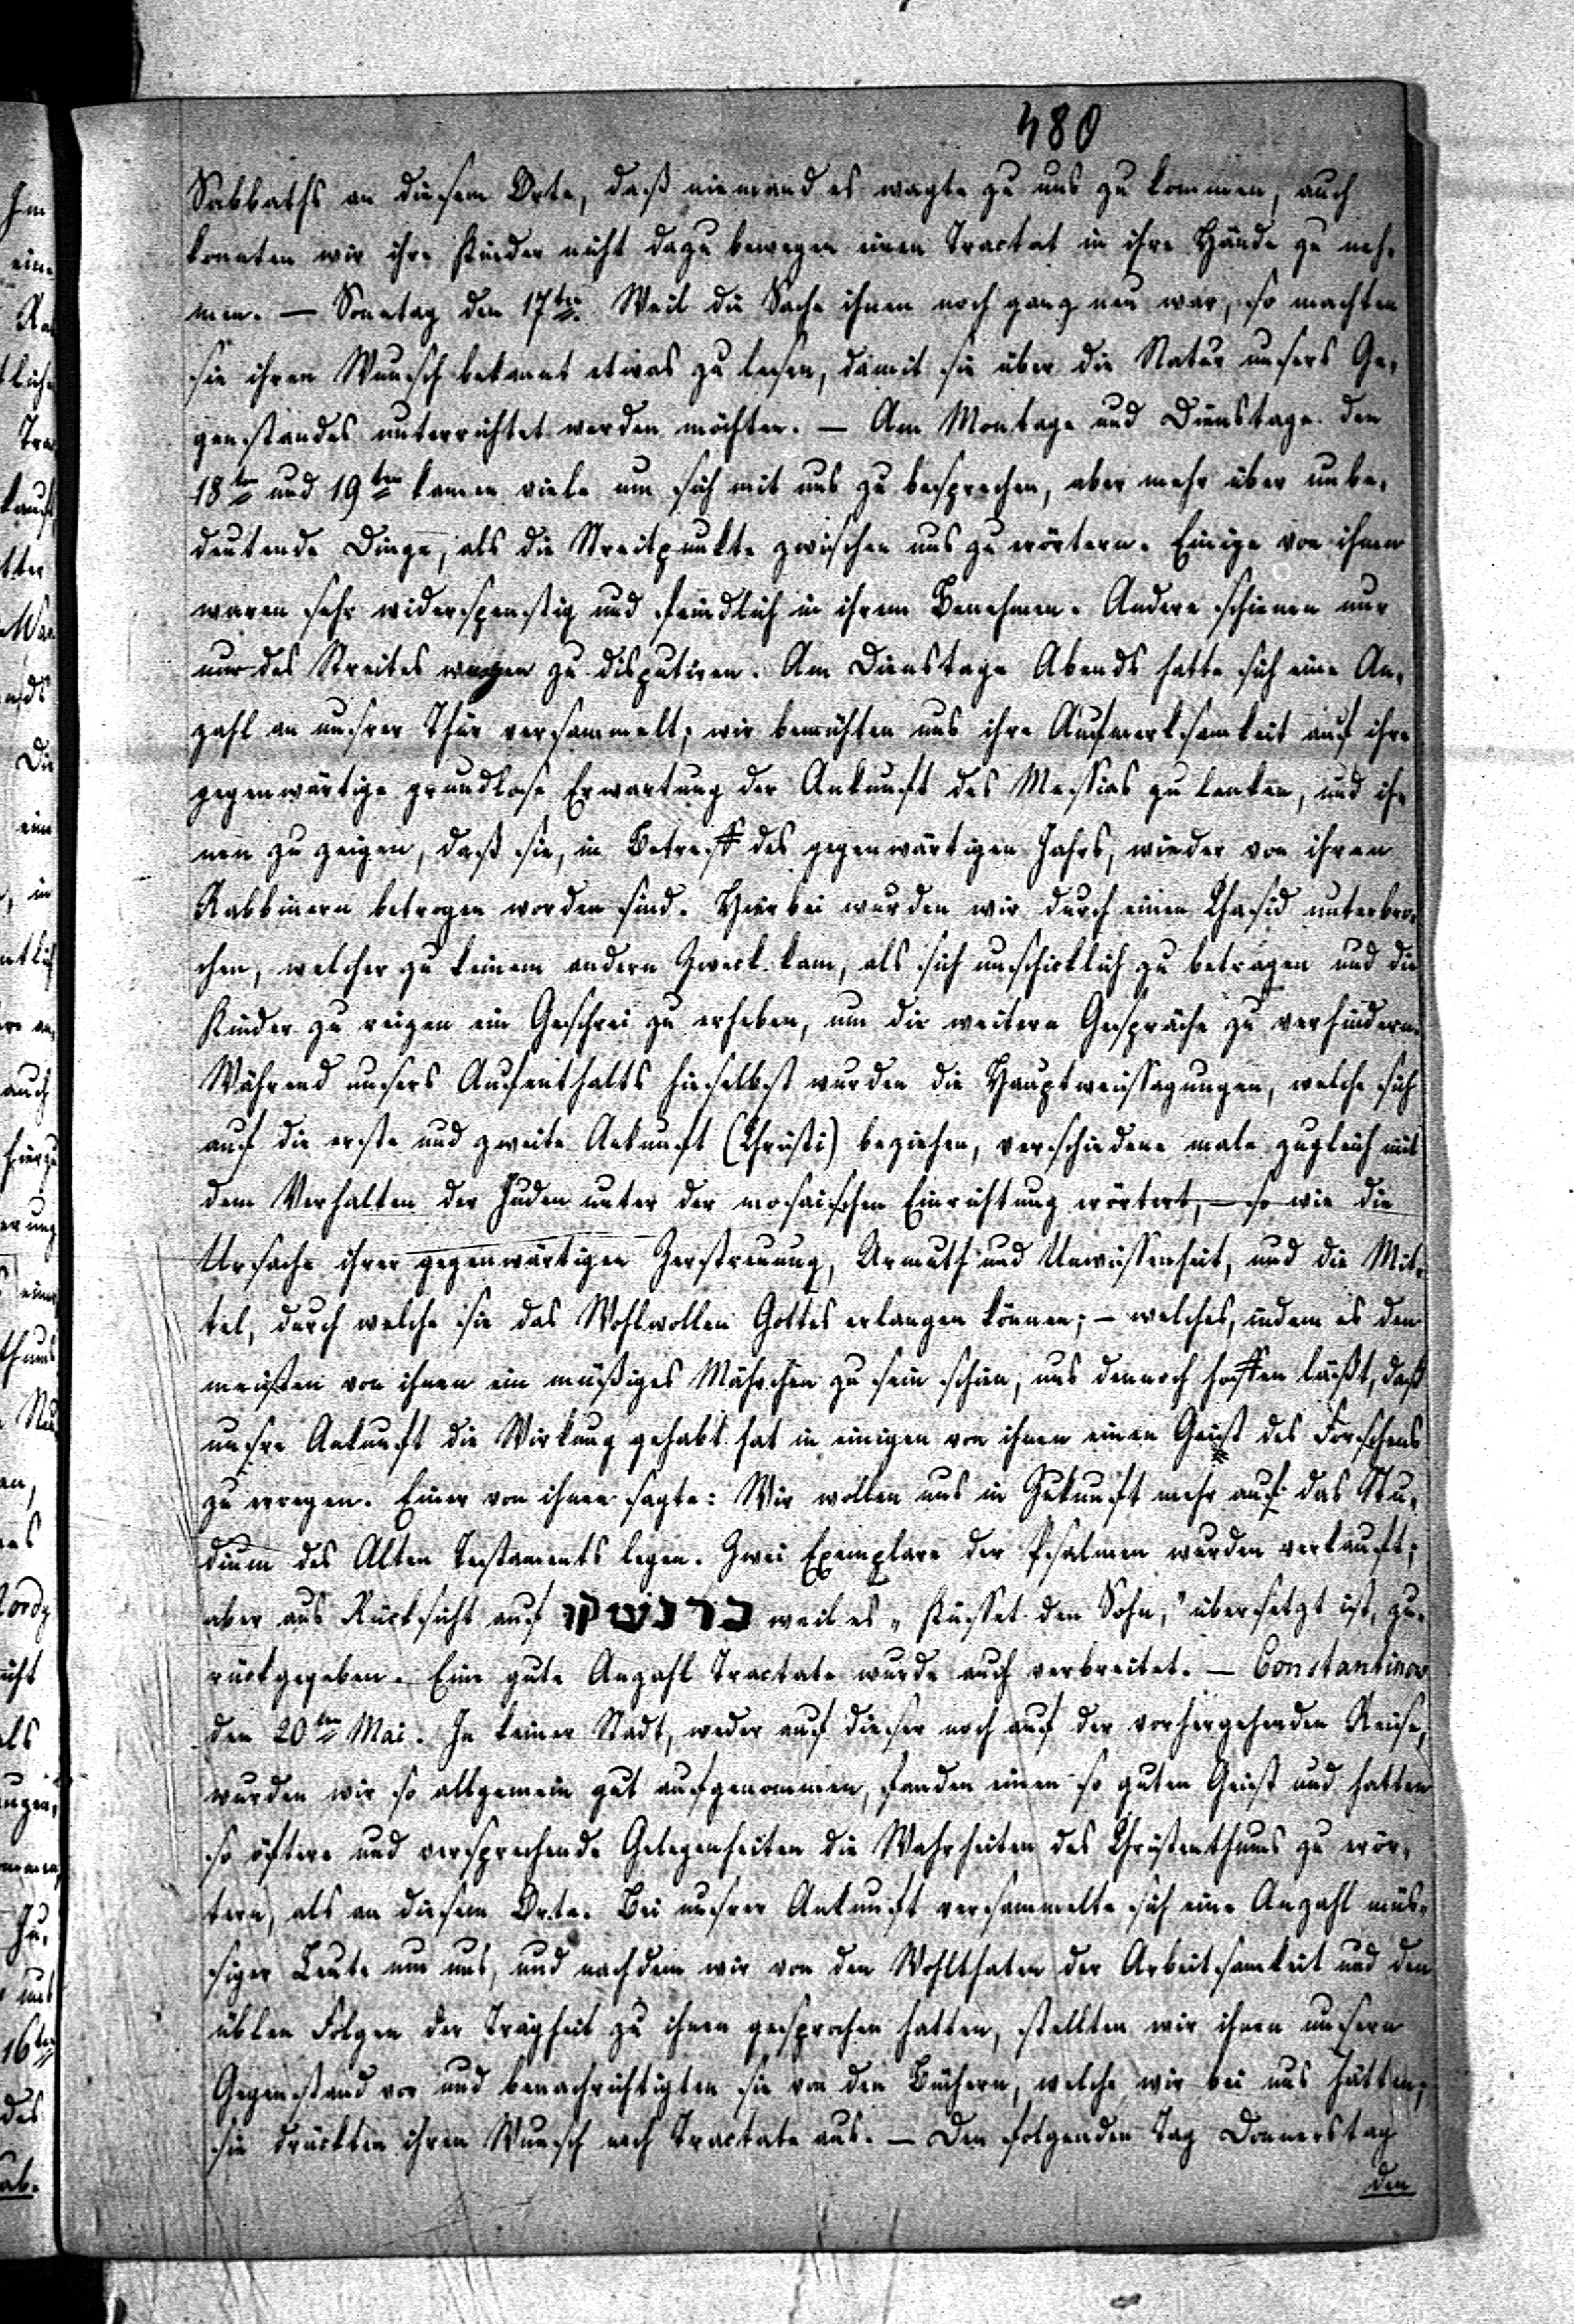 480
Sabbaths an diesem Orte, daß niemand es wagte zu uns zu kommen, auch
konnten wir ihre Kinder nicht dazu bewegen einen Tractat in ihre Hände zu neh-
men. — Sonntag den 17ten. Weil die Sache ihnen noch ganz neu war, so machten
sie ihren Wunsch bekannt etwas zu lesen, damit sie über die Natur unsers Ge-
genstandes unterrichtet werden möchten. — Am Montage und Dienstage den
18ten und 19ten kamen viele um sich mit uns zu besprechen, aber mehr über unbe-
deutende Dinge, als die Streitpunkte zwischen uns zu erörtern. Einige von ihnen
waren sehr widerspenstig und feindlich in ihrem Benehmen. Andere schienen nur
nur des Streites wegen zu disputiren. Am Dienstage Abends hatte sich eine An-
zahl an unsrer Thür versammelt; wir bemühten uns ihre Aufmerksamkeit auf ihre
gegenwärtige grundlose Erwartung der Ankunft des Messias zu lenken, und ih-
nen zu zeigen, daß sie, in Betreff des gegenwärtigen Jahrs, wieder von ihren
Rabbinern betrogen worden sind. Hierbei wurden wir durch einen Chasid unterbro-
chen, welcher zu keinem andern Zweck kam, als sich unschicklich zu betragen und die
Kinder zu reizen ein Geschrei zu erheben, um die weitern Gespräche zu verhindern.
Während unsers Aufenthalts hieselbst wurden die Hauptweissagungen, welche sich
auf die erste und zweite Ankunft (Christi) beziehen, verschiedene male zugleich mit
dem Verhalten der Juden unter der mosaischen Einrichtung erörtert, — so wie die
Ursache ihrer gegenwärtigen Zerstreuung, Armuth und Unwissenheit, und die Mit-
tel, durch welche sie das Wohlwollen Gottes erlangen können; — welches, indem es den
meisten von ihnen ein müßiges Mährchen zu sein schien, uns dennoch hoffen läßt, daß
unsre Ankunft die Wirkung gehabt hat in einigen von ihnen einen Geist des Forschens
zu erregen. Einer von ihnen sagte: Wir wollen uns in Zukunft mehr auf das Stu-
dium des Alten Testaments legen. Zwei Exemplare der Psalmen wurden verkauft;
aber aus Rücksicht auf נשקו בר weil es „ küsset den Sohn," übersetzt ist, zu-
rückgegeben. Eine gute Anzahl Tractate wurde auch verbreitet. — Constantinow
den 20ten Mai. In keiner Stadt, weder auf dieser noch auf der vorhergehenden Reise,
wurden wir so allgemein gut aufgenommen, fanden einen so guten Geist und hatten
so öftere und versprechende Gelegenheiten die Wahrheiten des Christenthums zu erör-
tern, als an diesem Orte. Bei unsrer Ankunft versammelte sich eine Anzahl müs-
siger Leute um uns, und nachdem wir von den Wohlthaten der Arbeitsamkeit und den
üblen Folgen der Trägheit zu ihnen gesprochen hatten, stellten wir ihnen unsern
Gegenstand vor und benachrichtigten sie von den Büchern, welche wir bei uns hätten;
sie drückten ihren Wunsch nach Tractate aus. — Den folgenden Tag Donnerstag
den